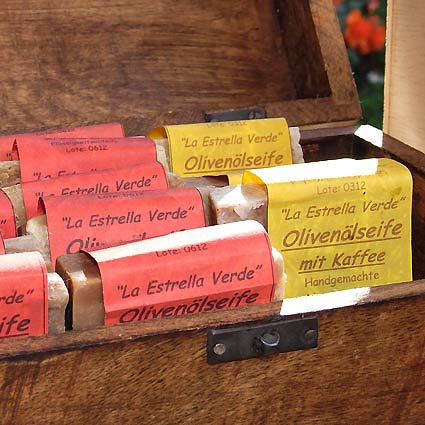 Lote: 0612
"La Estrella Verde"
"La Estrella Verde"
Olivenölseife
"La Estrella Verde"
"La Estrella Verde"
Lote: 0612
"La Estrella Verde"
Olivenölseife
Verde"
seife
Lote: 0312
"La Estrella Verde"
Olivenölseife
mit Kaffee
Handgemachte